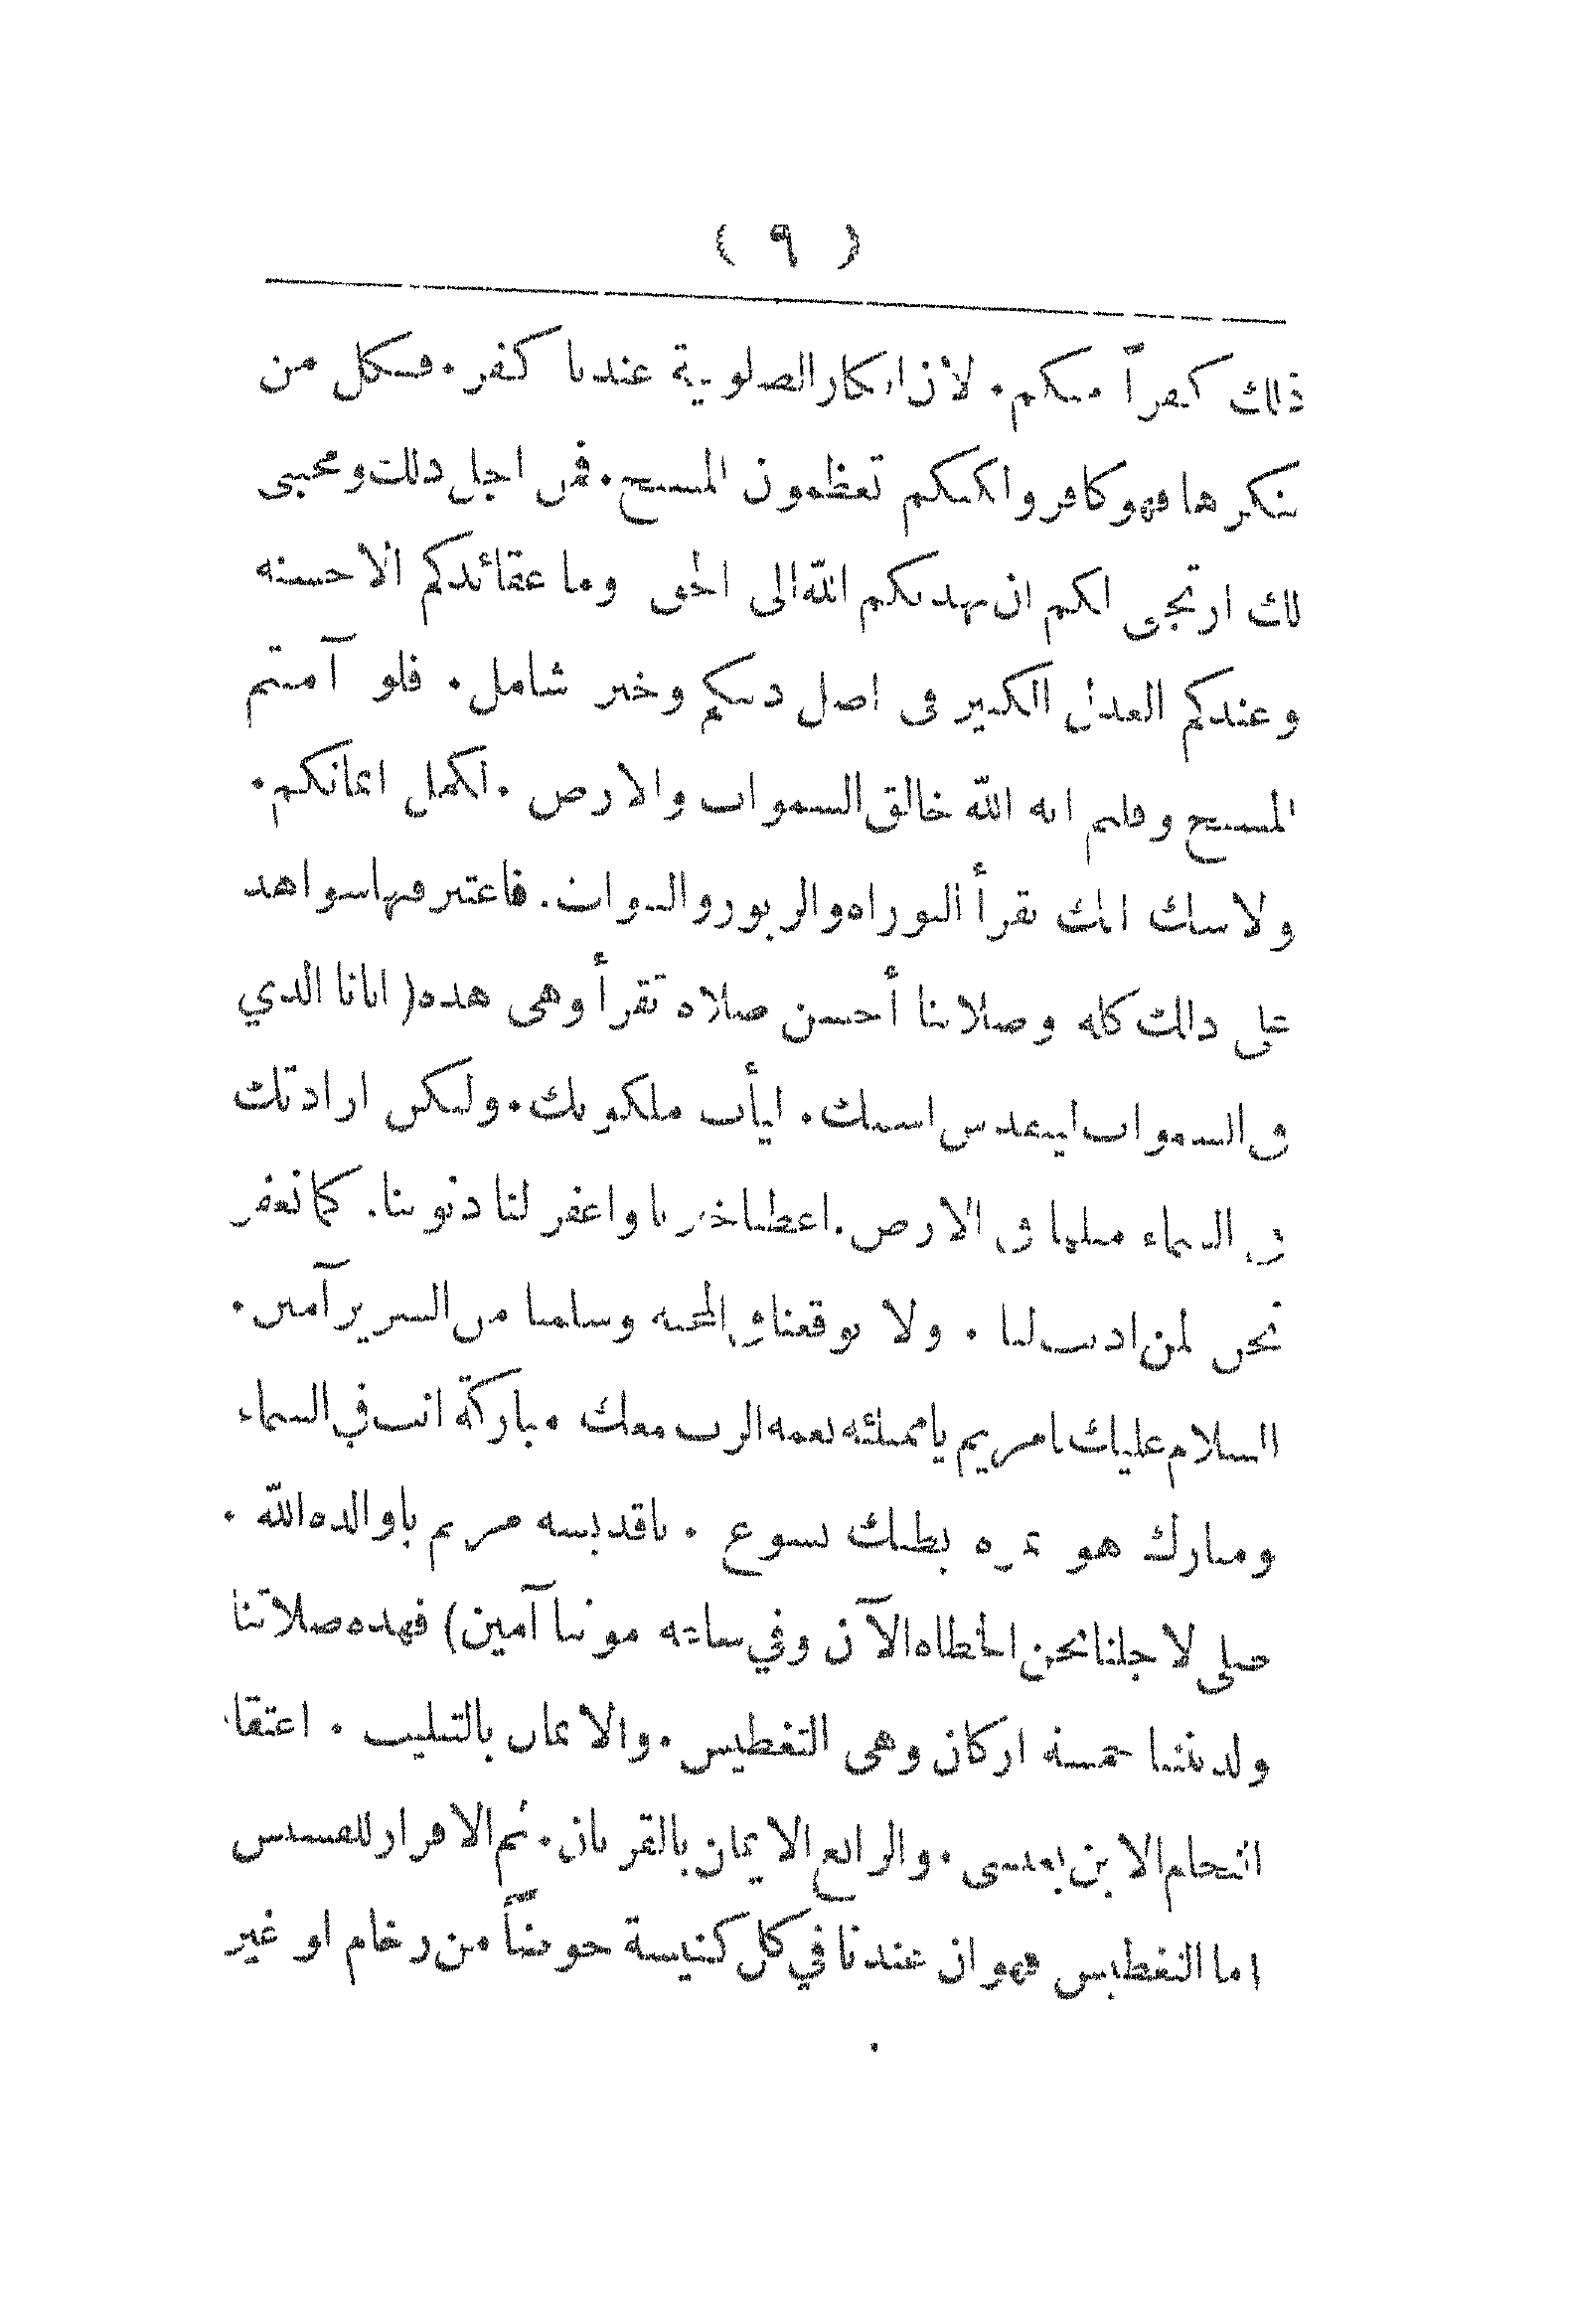 ( ٩ )
ذلك كفراً منكم. لان انكار الصلوبية عندنا كفر. فكل من
ينكرها فهو كافر ولكنكم تعظمون المسيح. فمن اجل ذلك ومحبتى
لك ارتجى لكم ان يهديكم الله الى الحق وما عقائدكم الا حسنه
وعندكم العدل الكبير فى اصل دينكم وخير شامل. فلو آمنتم
المسيح وقلتم انه الله خالق السموات والارض. لكمل ايمانكم.
ولا شك انك تقرأ التوراه والزبور والنبوات. فاعتبر فيها شواهد
على ذلك كله وصلاتنا أحسن صلاه تقرأ وهى هذه (ابانا الذي
فى السموات ليتقدس اسمك. ليأت ملكوتك. ولتكن ارادتك
فى السماء مثلما فى الارض. اعطنا خبزنا واغفر لنا ذنوبنا. كما نغفر
نحن لمن اذنب لنا. ولا توقعنا فى المحنه وسلمنا من الشرير آمين.
السلام عليك يا مريم يا ممتلئه نعمه الرب معك. مباركة انت في النساء
ومبارك هو ثمره بطنك يسوع. يا قديسه مريم يا والده الله.
صلى لاجلنا نحن الخطاه الآن وفي ساعه موتنا آمين) فهذه صلاتنا
ولديننا خمسة اركان وهى التغطيس. والايمان بالتثليث. اعتقاد
التحام الابن بعيسى. والرابع الايمان بالقربان. ثم الاقرار للقسيس
اما التغطيس فهو ان عندنا في كل كنيسة حوضاً من رخام او غير